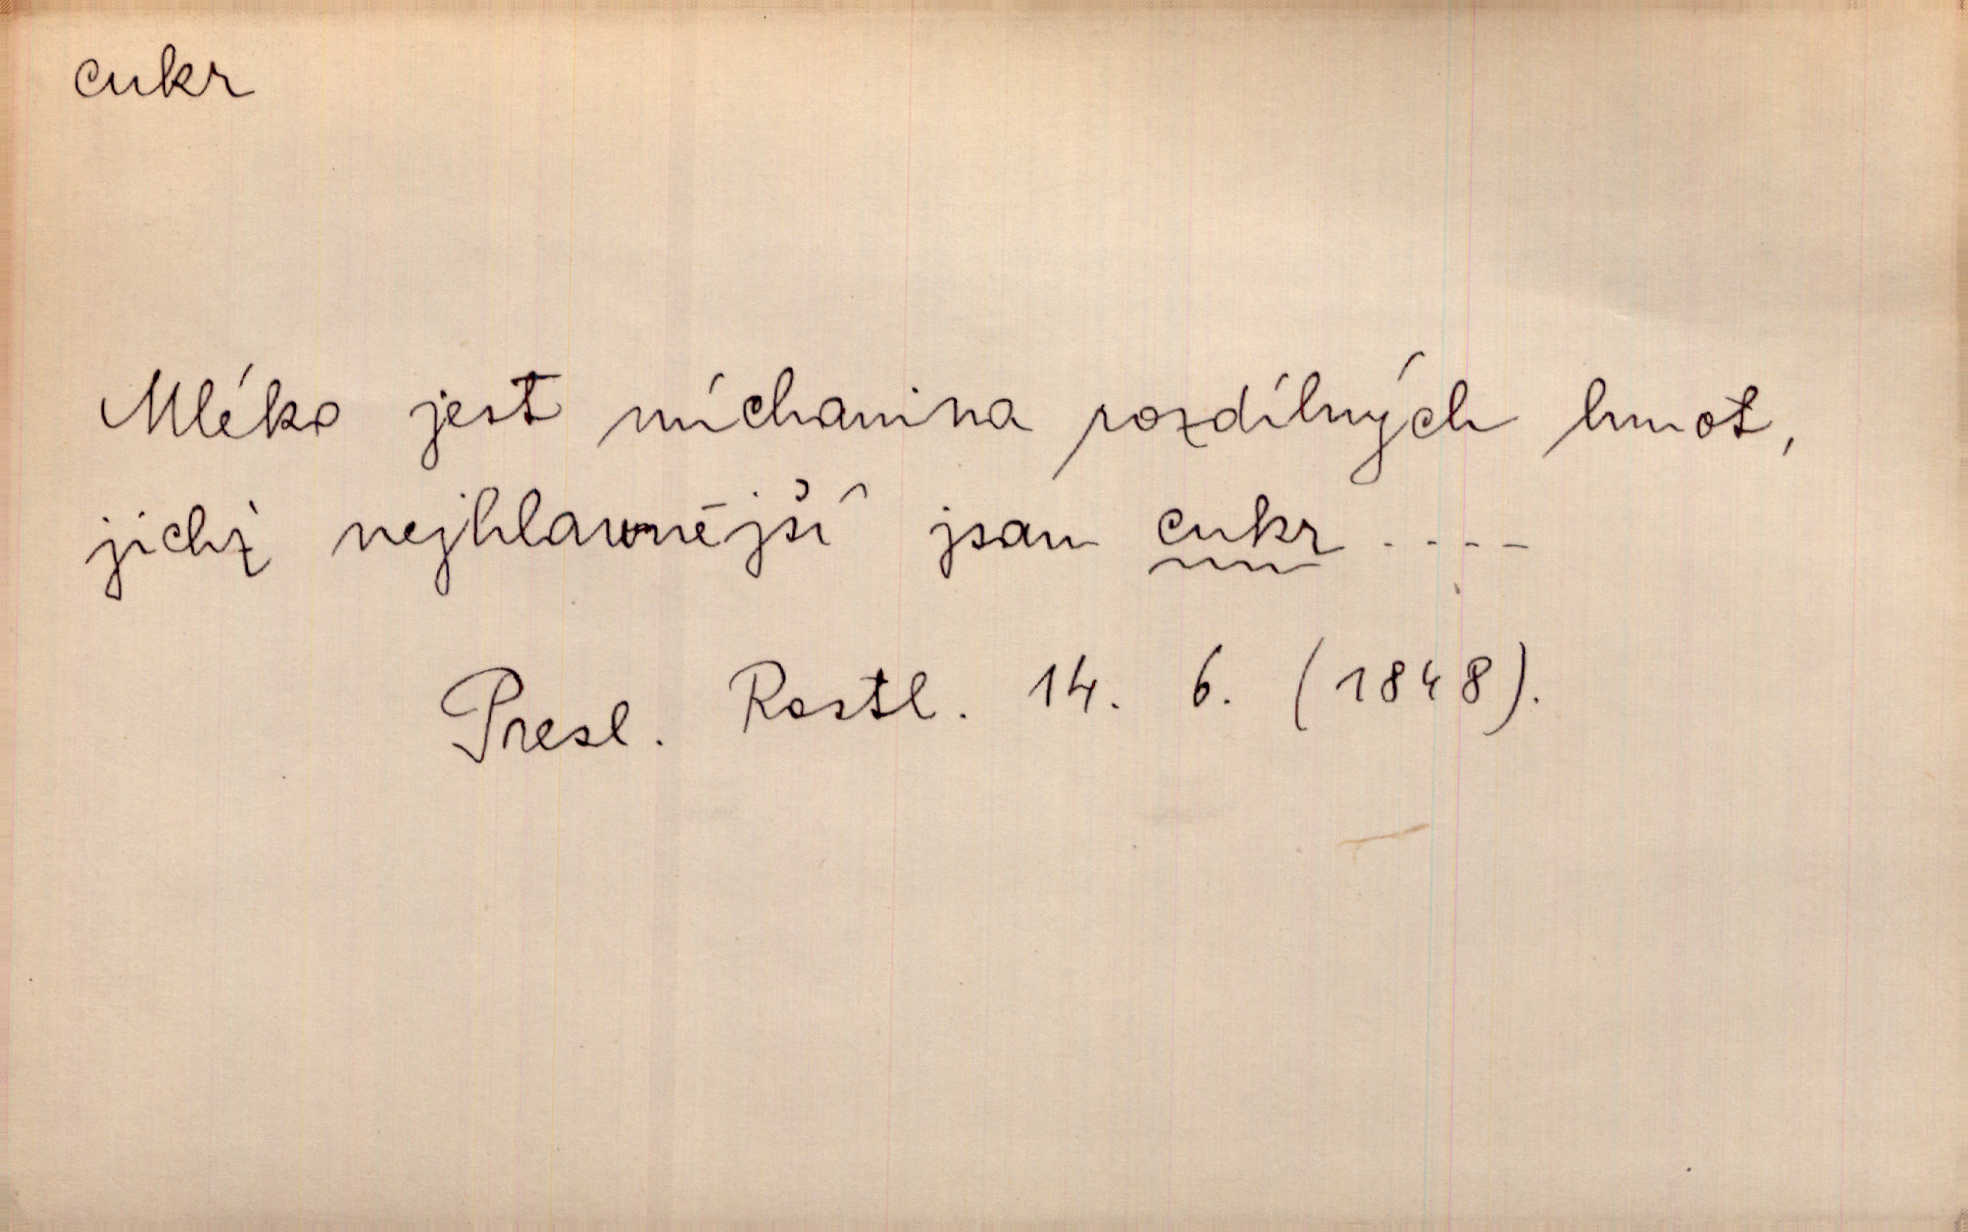 cukr
Mléko jest míchanina rozdílných hmot,
jichž nejhlavnější jsou cukr ....
Presl. Rostl. 14. 6. (1848).